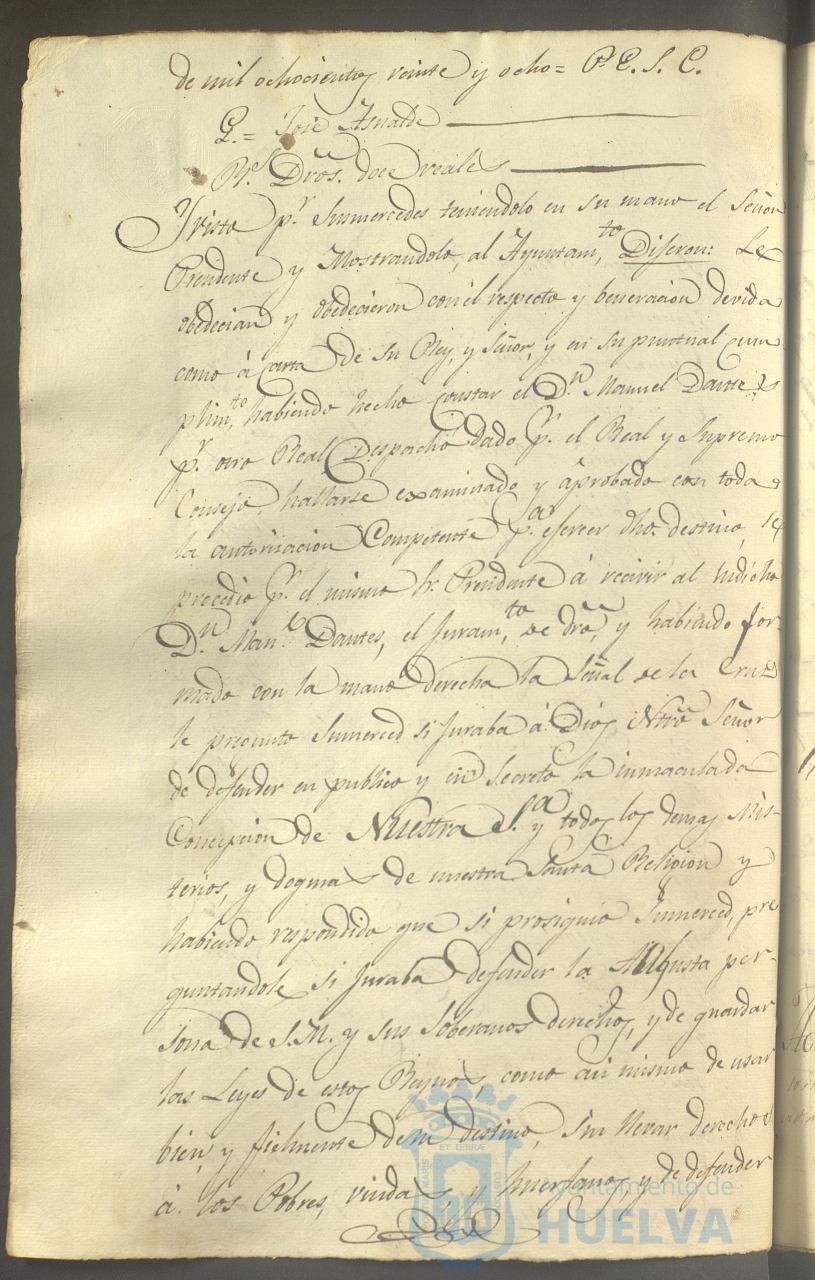 de mil ochocientos veinte y ocho = P. E. S. C.
G. = José Asnalde
Rs. Dros. doce reales
Y visto pr. Sumercedes teniendolo en su mano el Señor
Precidente y Mostrandolo al Ayuntamto, Dijeron: Le
obedecian y obedecieron con el respecto y beneracion devida
como à carta de su Rey, y Señor, y en su puntual cum
plimto, habiendo hecho constar el Dn. Manuel Dantes
pr. otro Real Despacho dado pr. el Real y Supremo
Consejo, hallarse examinado y aprobado con toda
la autorizacion Competente pa. ejercer dho. destino, se
procedio pr. el mismo Sr. Precidente à recivir al Yndicho
Dn. Manl. Dantes, el Juramto, de dro, y habiendo for-
mado con la mano derecha la Señal de la Cruz
le pregunto Sumerced si Juraba à Dios Ntro Señor
de defender en publico y en Secreto la inmaculada
Concepcion de Nuestra Sa. y todos los demas Mis-
terios, y dogmas de nuestra Santa Religion y
habiendo respondido que si prosiguio Sumerced, pre
guntandole, si Juraba defender la Augusta per-
sona de S.M. y sus Soberanos derechos, y de guardar
las Leyes de estos Reynos como asi mismo de usar
bien y fielmente de su destino, sin llevar derechos
à los Pobres, viudas y huerfanos, y de defender
ET TERRÆ
Ayuntamiento de
HUELVA